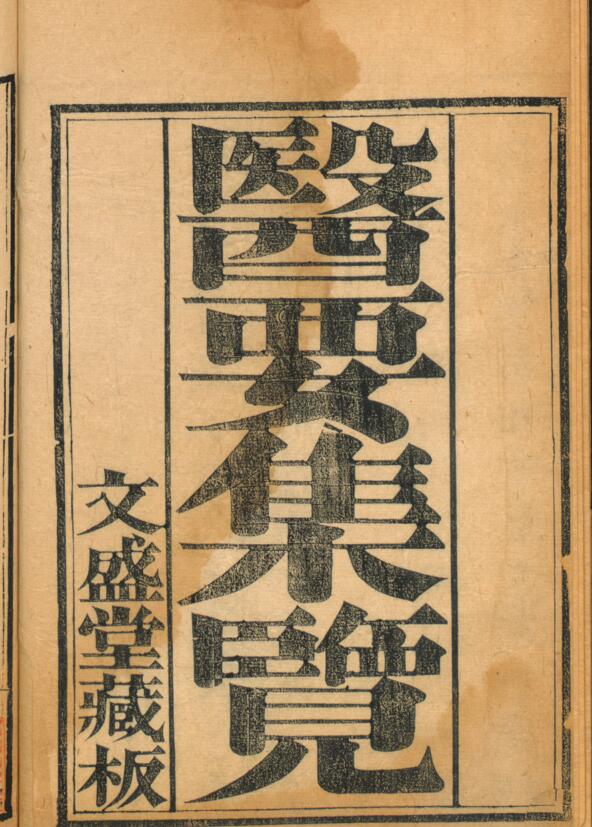 醫要集覽
文盛堂藏板